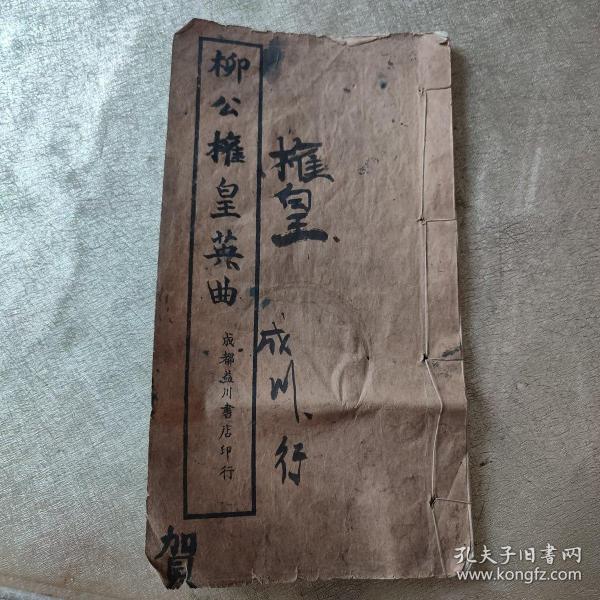 柳公権皇英曲
成都益川書店印行
権皇
成川行
賀
孔夫子旧书网
www.kongfz.com